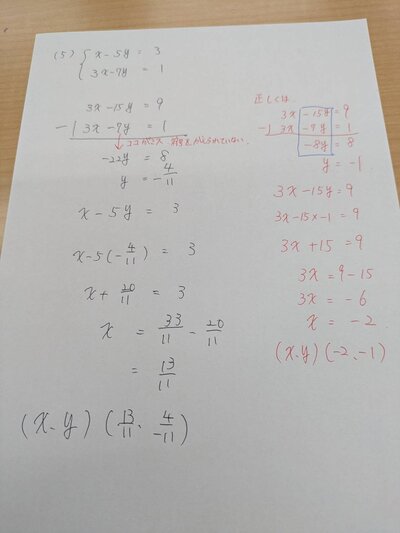 (5) { x - 5y = 3
3x - 7y = 1
3x - 15y = 9
-) 3x - 7y = 1
ココがミス 符号をかえられていない。
-22y = 8
y = -4/11
x - 5y = 3
x - 5(-4/11) = 3
x + 20/11 = 3
x = 33/11 - 20/11
= 13/11
(x、y) (13/11、4/-11)
正しくは
3x - 15y = 9
-) 3x - 7y = 1
-8y = 8
y = -1
3x - 15y = 9
3x - 15 x -1 = 9
3x + 15 = 9
3x = 9 - 15
3x = -6
x = -2
(x、y) (-2、-1)